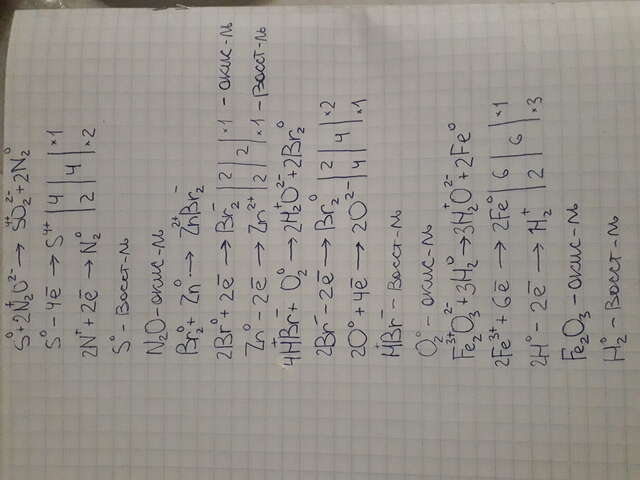 S⁰+2N₂⁺O²⁻ → S⁴⁺O₂²⁻+2N₂⁰
S⁰ - 4ē → S⁴⁺ | 4 | 4 | ×1
2N⁺ + 2ē → N₂⁰ | 2 | | ×2
S⁰ - Восст-ль
N₂O - окис-ль
Br₂⁰ + Zn⁰ → Zn²⁺Br₂⁻
2Br⁰ + 2ē → Br₂⁻ | 2 | 2 | ×1 - окис-ль
Zn⁰ - 2ē → Zn²⁺ | 2 | | ×1 - Восст-ль
4H⁺Br⁻ + O₂⁰ → 2H₂⁺O²⁻+2Br₂⁰
2Br⁻ - 2ē → Br₂⁰ | 2 | 4 | ×2
2O⁰ + 4ē → 2O²⁻ | 4 | | ×1
H⁺Br⁻ - Восст-ль
O₂⁰ - окис-ль
Fe₂³⁺O₃²⁻+3H₂⁰→3H₂⁺O²⁻+2Fe⁰
2Fe³⁺ + 6ē → 2Fe⁰ | 6 | 6 | ×1
2H⁰ - 2ē → H₂⁺ | 2 | | ×3
Fe₂O₃ - окис-ль
H₂⁰ - Восст-ль